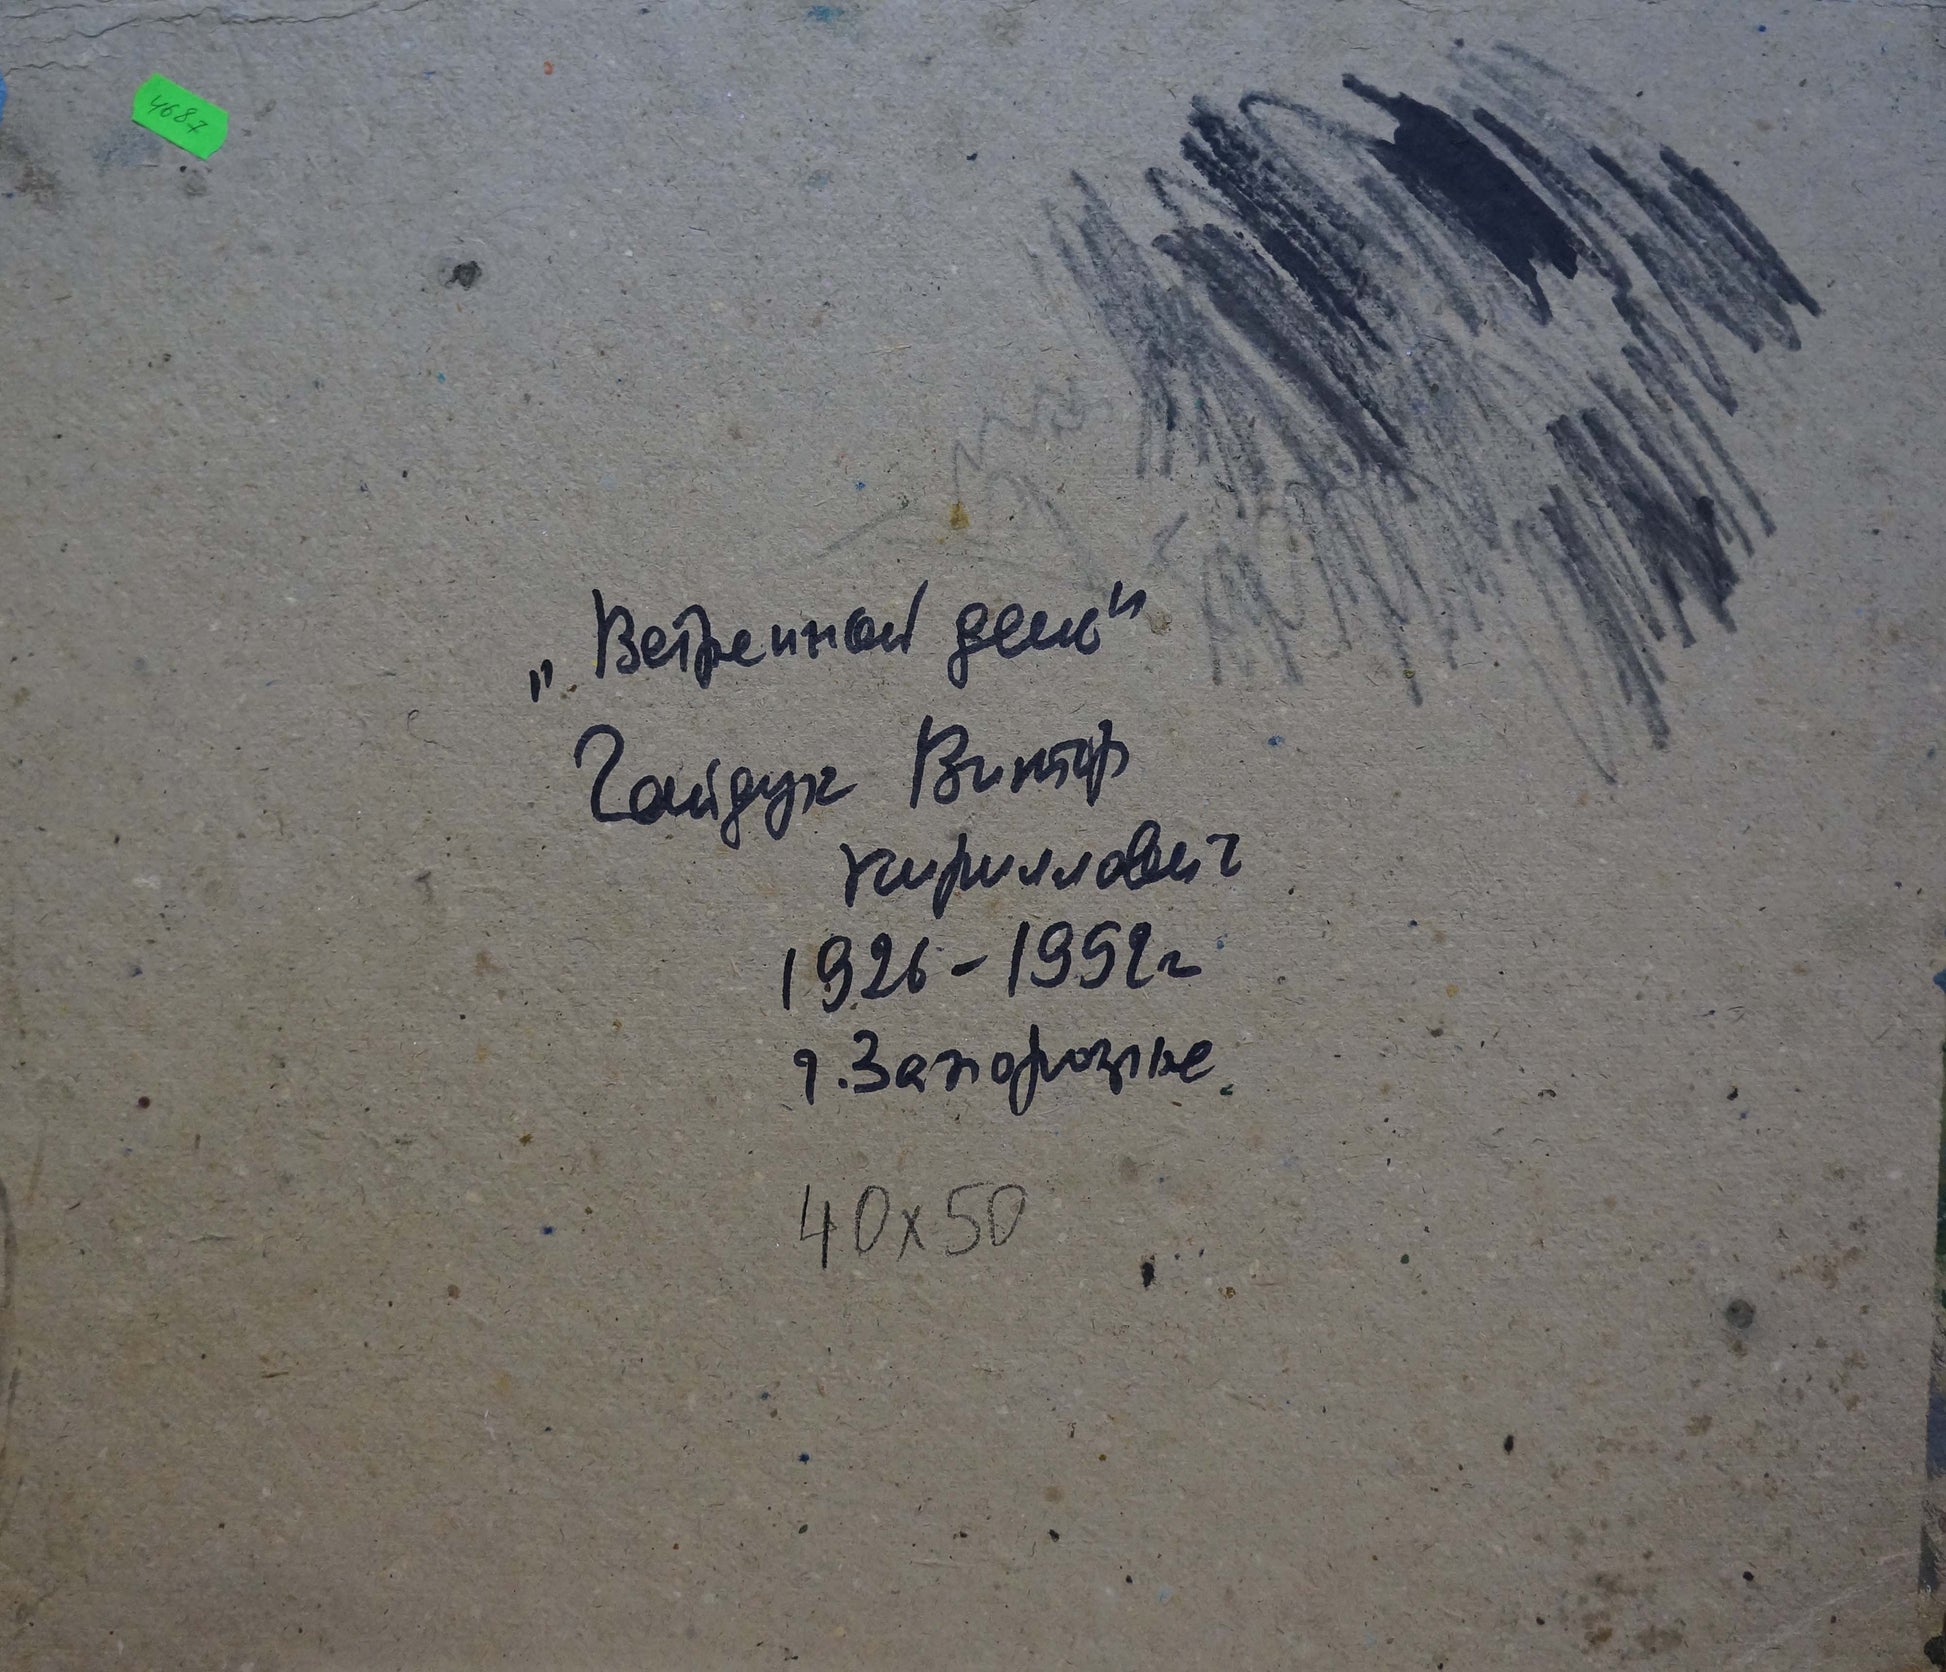 4687
„Ветреный день"
Гайдук Виктор
Кириллович
1926-1992г
г. Запорожье
40x50